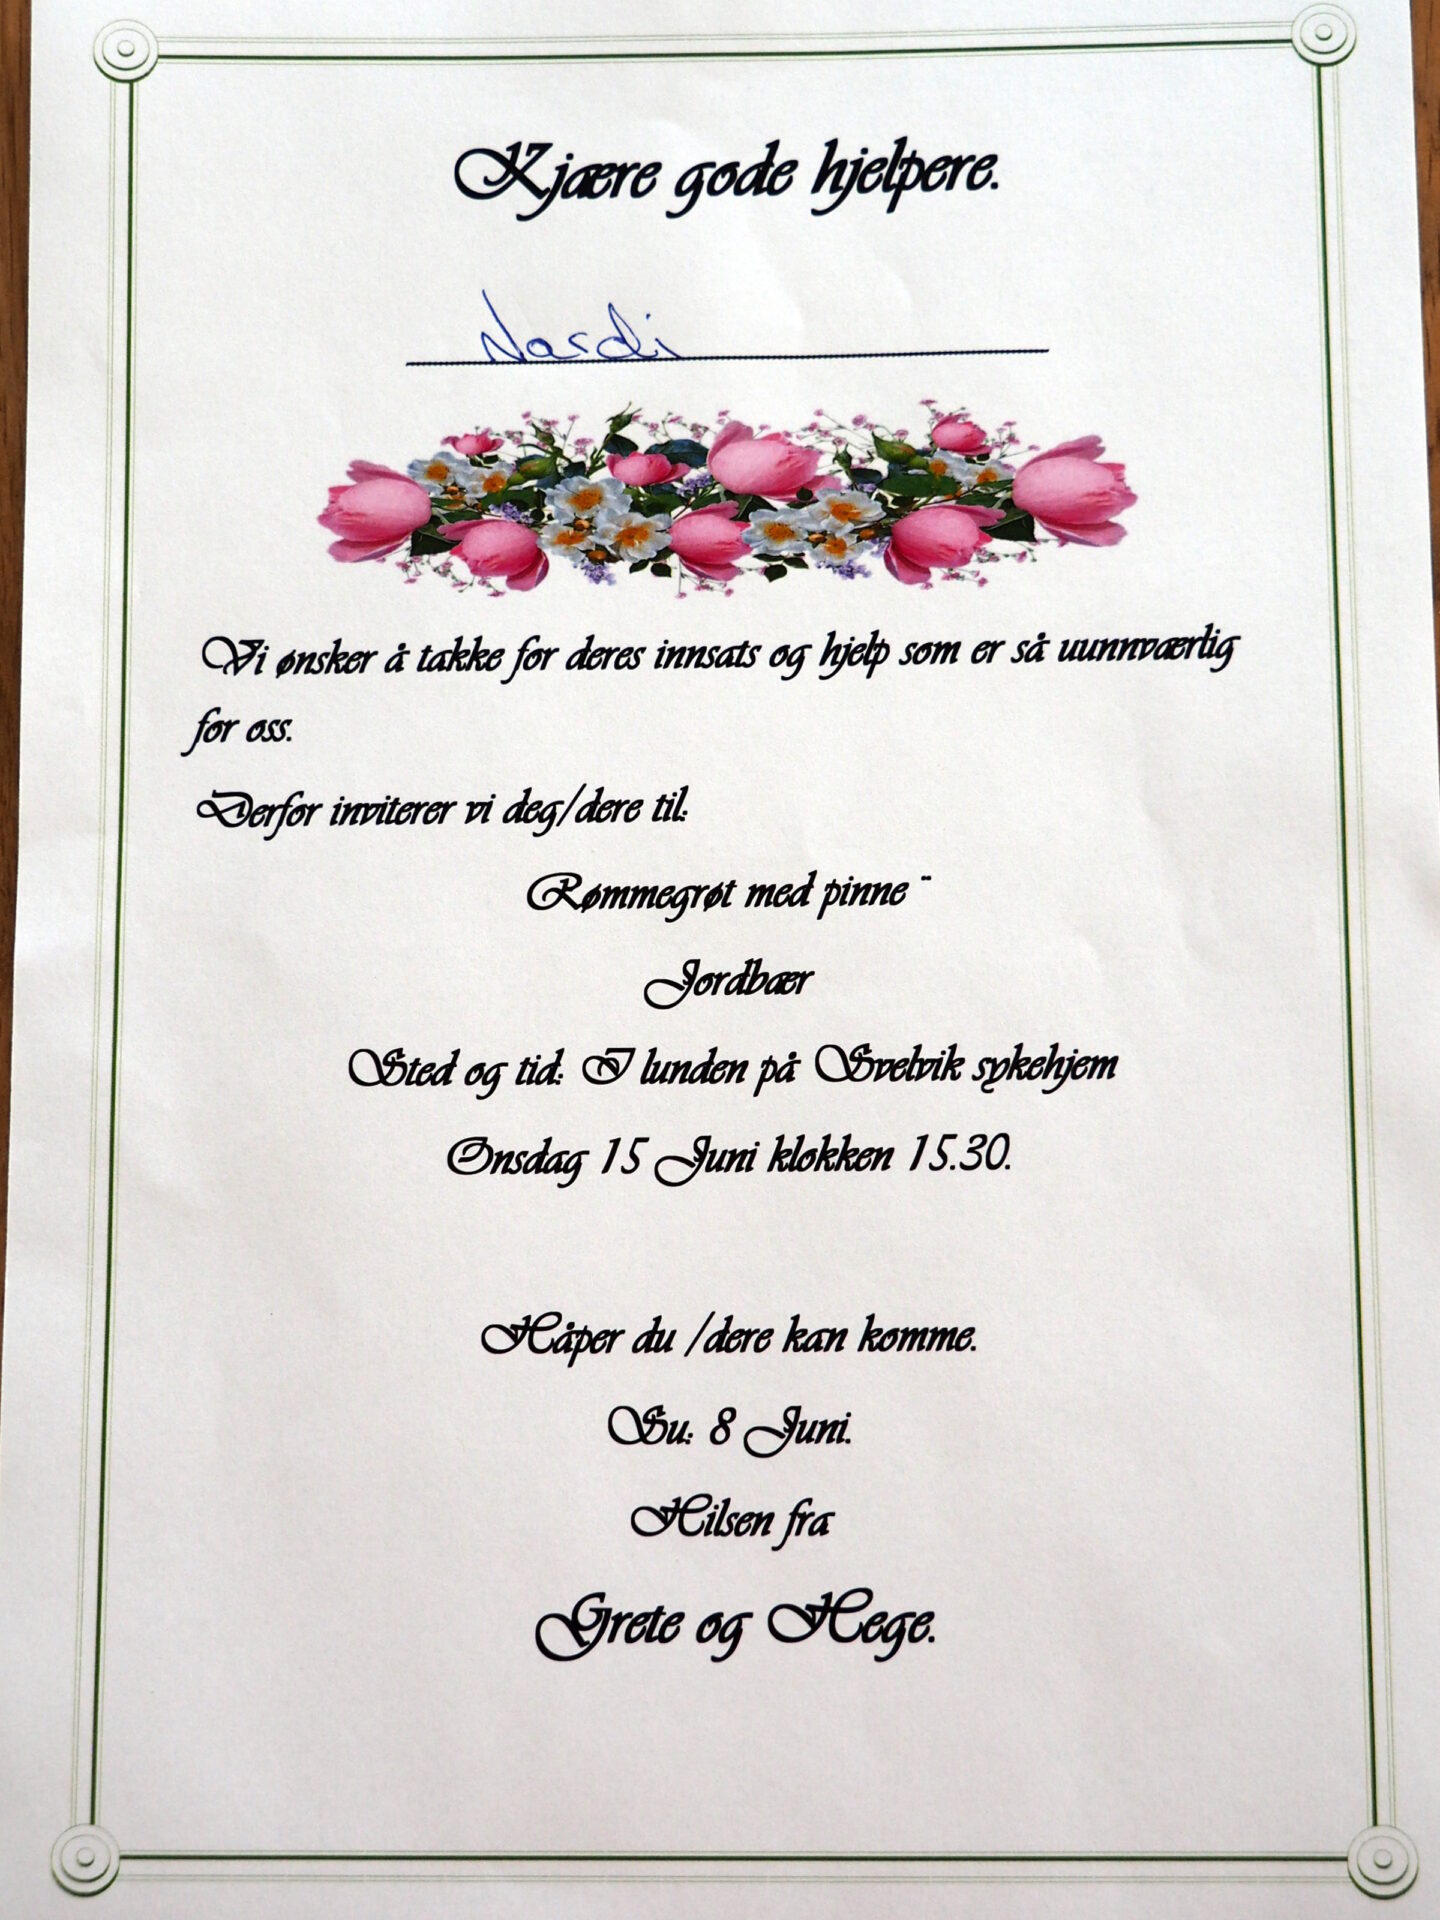 Kjære gode hjelpere.
Nardi
Vi ønsker å takke for deres innsats og hjelp som er så uunnværlig
for oss.
Derfor inviterer vi deg/dere til:
Rømmegrøt med pinne ¨
Jordbær
Sted og tid: I lunden på Svelvik sykehjem
Onsdag 15 Juni klokken 15.30.
Håper du /dere kan komme.
Su: 8 Juni.
Hilsen fra
Grete og Hege.